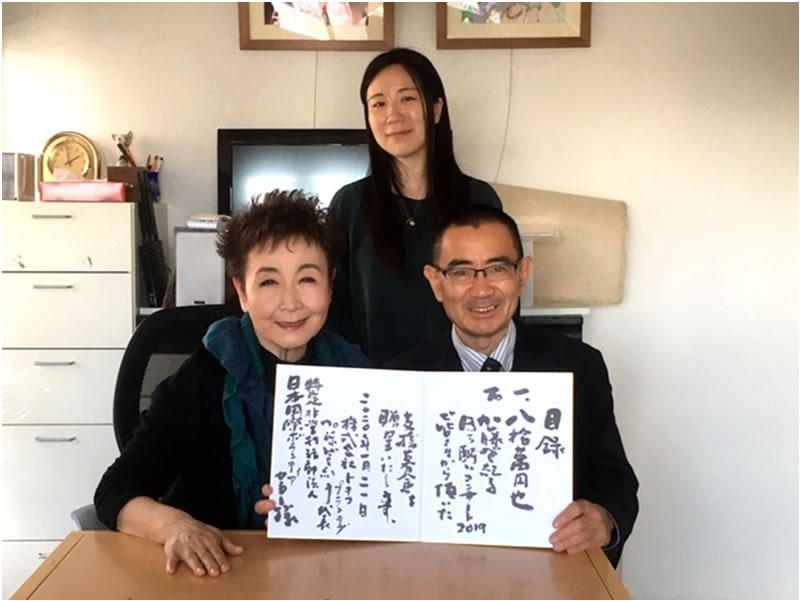 目録
一、八拾萬円也
加藤登紀子
ほろ酔いコンサート2019
で皆さまから頂いた
支援募金を
贈呈いたします。
二〇二〇年一月
株式会社トキコ・プランニング
特定非営利活動法人
日本国際ボランティア
様